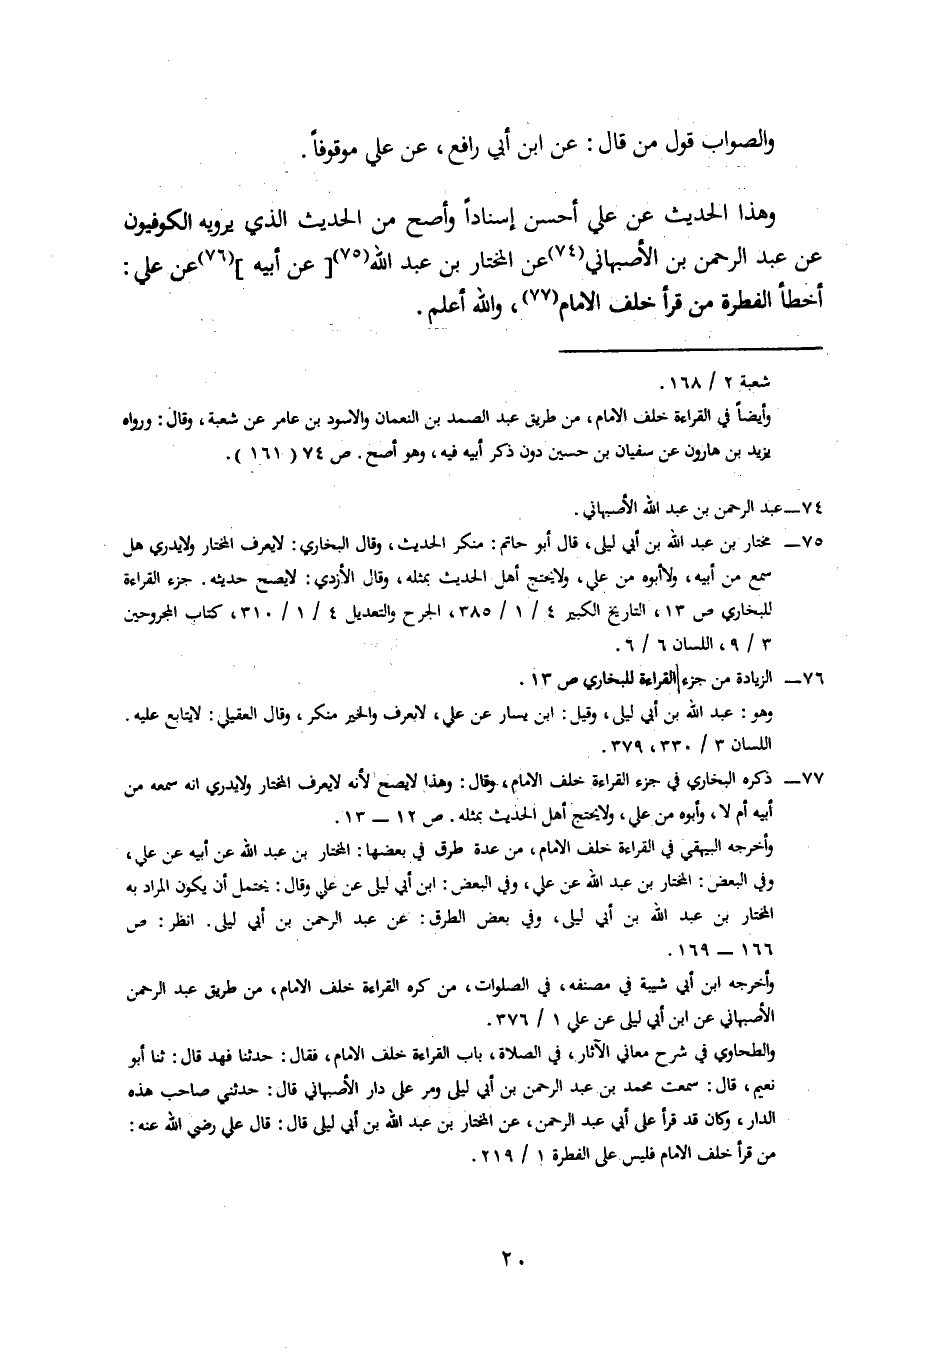 والصواب قول من قال : عن ابن أبي رافع ، عن علي موقوفاً .
وهذا الحديث عن علي أحسن إسناداً وأصح من الحديث الذي يرويه الكوفيون
عن عبد الرحمن بن الأصبهاني(٧٤)عن المختار بن عبد الله(٧٥)[ عن أبيه ](٧٦)عن علي :
أخطأ الفطرة من قرأ خلف الامام(٧٧) ، والله أعلم .
شعبة ٢ / ١٦٨ .
وأيضاً في القراءة خلف الامام ، من طريق عبد الصمد بن النعمان والاسود بن عامر عن شعبة ، وقال : ورواه
يزيد بن هارون عن سفيان بن حسين دون ذكر أبيه فيه ، وهو أصح . ص ٧٤ ( ١٦١ ) .
٧٤ــ عبد الرحمن بن عبد الله الأصبهاني .
٧٥ــ مختار بن عبد الله بن أبي ليلى ، قال أبو حاتم : منكر الحديث ، وقال البخاري : لايعرف المختار ولايدري هل
سمع من أبيه ، ولاأبوه من علي ، ولايحتج أهل الحديث بمثله ، وقال الأزدي : لايصح حديثه . جزء القراءة
للبخاري ص ١٣ ، التاريخ الكبير ٤ / ١ / ٣٨٥ ، الجرح والتعديل ٤ / ١ / ٣١٠ ، كتاب المجروحين
٣ / ٩ ، اللسان ٦ / ٦ .
٧٦ــ الزيادة من جزء القراءة للبخاري ص ١٣ .
وهو : عبد الله بن أبي ليلى ، وقيل : ابن يسار عن علي ، لايعرف والخبر منكر ، وقال العقيلي : لايتابع عليه .
اللسان ٣ / ٣٣٠ ، ٣٧٩ .
٧٧ــ ذكره البخاري في جزء القراءة خلف الامام ، وقال : وهذا لايصح لأنه لايعرف المختار ولايدري انه سمعه من
أبيه أم لا ، وأبوه من علي ، ولايحتج أهل الحديث بمثله . ص ١٢ ــ ١٣ .
وأخرجه البيهقي في القراءة خلف الامام ، من عدة طرق في بعضها : المختار بن عبد الله عن أبيه عن علي ،
وفي البعض : المختار بن عبد الله عن علي ، وفي البعض : ابن أبي ليلى عن علي وقال : يحتمل أن يكون المراد به
المختار بن عبد الله بن أبي ليلى ، وفي بعض الطرق : عن عبد الرحمن بن أبي ليلى . انظر : ص
١٦٦ ــ ١٦٩ .
وأخرجه ابن أبي شيبة في مصنفه ، في الصلوات ، من كره القراءة خلف الامام ، من طريق عبد الرحمن
الأصبهاني عن ابن أبي ليلى عن علي ١ / ٣٧٦ .
والطحاوي في شرح معاني الآثار ، في الصلاة ، باب القراءة خلف الامام ، فقال : حدثنا فهد قال : ثنا أبو
نعيم ، قال : سمعت محمد بن عبد الرحمن بن أبي ليلى ومر على دار الأصبهاني قال : حدثني صاحب هذه
الدار ، وكان قد قرأ على أبي عبد الرحمن ، عن المختار بن عبد الله بن أبي ليلى قال : قال علي رضي الله عنه :
من قرأ خلف الامام فليس على الفطرة ١ / ٢١٩ .
٢٠